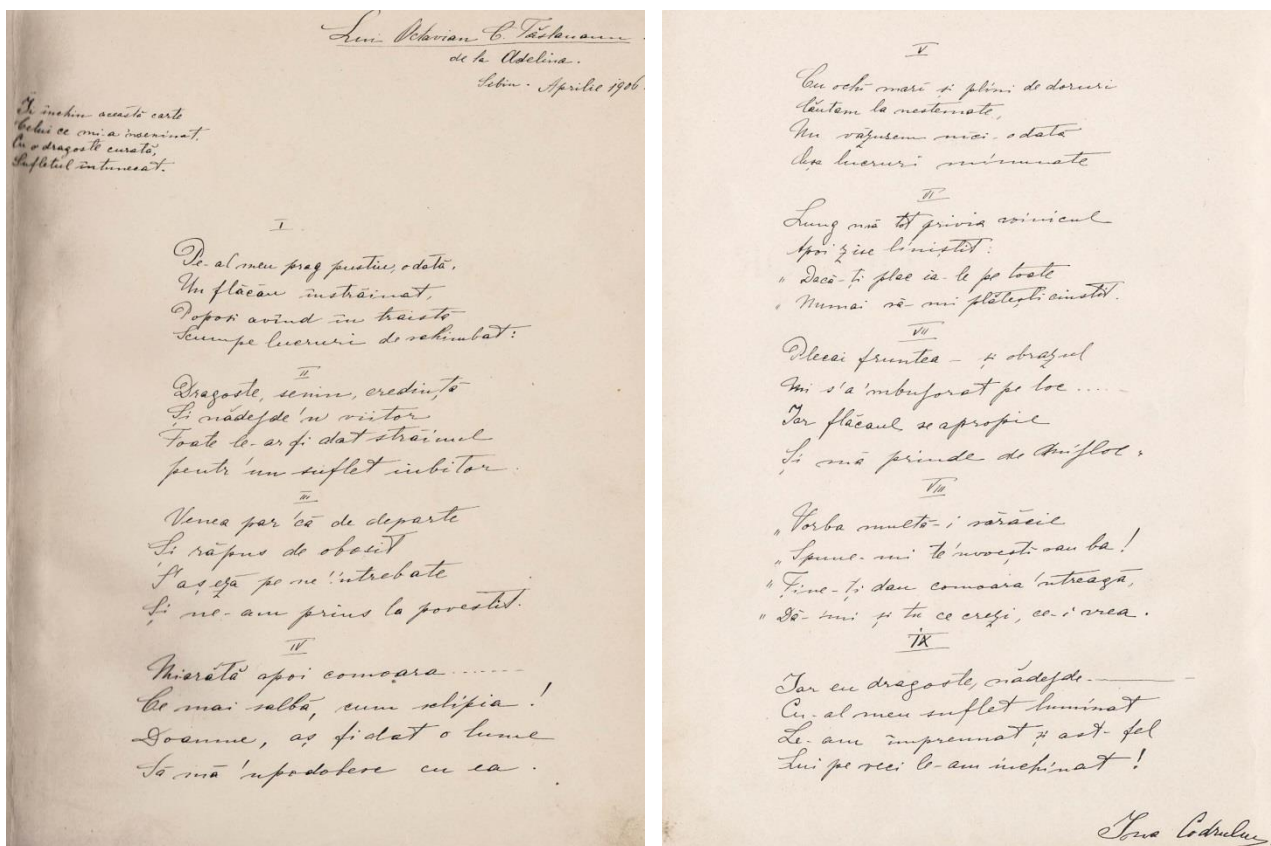 Lui Octavian C. Tăslauanu.
de la Adelina.
Sibiu. Aprilie 1906.
Îi închin această carte
Celui ce mi-a 'nseninat.
Cu o dragoste curată,
Sufletul întunecat.
I
Pe-al meu prag pustiu, odată,
Un flăcău înstrăinat,
Poposi avînd în traistă
Scumpe lucruri de schimbat:
II
Dragoste, senin, credință
Și nădejde'n viitor
Toate le-ar fi dat străinul
pentr'un suflet iubitor.
III
Venea par'că de departe
Și răpus de obosit
S'așeză pe ne'ntrebate
Și ne-am prins la povestit.
IV
Mi-arătă apoi comoara......
Ce mai salbă, cum sclipia!
Doamne, aș fi dat o lume
Să mă 'npodobesc cu ea.
V
Cu ochi mari și plini de doruri
Căutam la nestemate,
Nu văzusem nici-odată
Așa lucruri minunate
VI
Lung mă tot privia voinicul
Apoi zise liniștit:
„Dacă-ți plac ia-le pe toate
„Numai să-mi plătești cinstit.
VII
Plecai fruntea – și obrazul
Mi s'a 'mbujorat pe loc.....
Iar flăcăul se apropie
Și mă prinde de mijloc:
VIII
„Vorba multă-i sărăcie
„Spune-mi te'nvoești sau ba!
„Ține-ți dau comoara 'ntreagă,
„Dă-mi și tu ce crezi, ce-i vrea.
IX
Iar eu dragoste, nădejde
Cu-al meu suflet luminat
Le-am împreunat și ast-fel
Lui pe veci le-am închinat!
Codrului